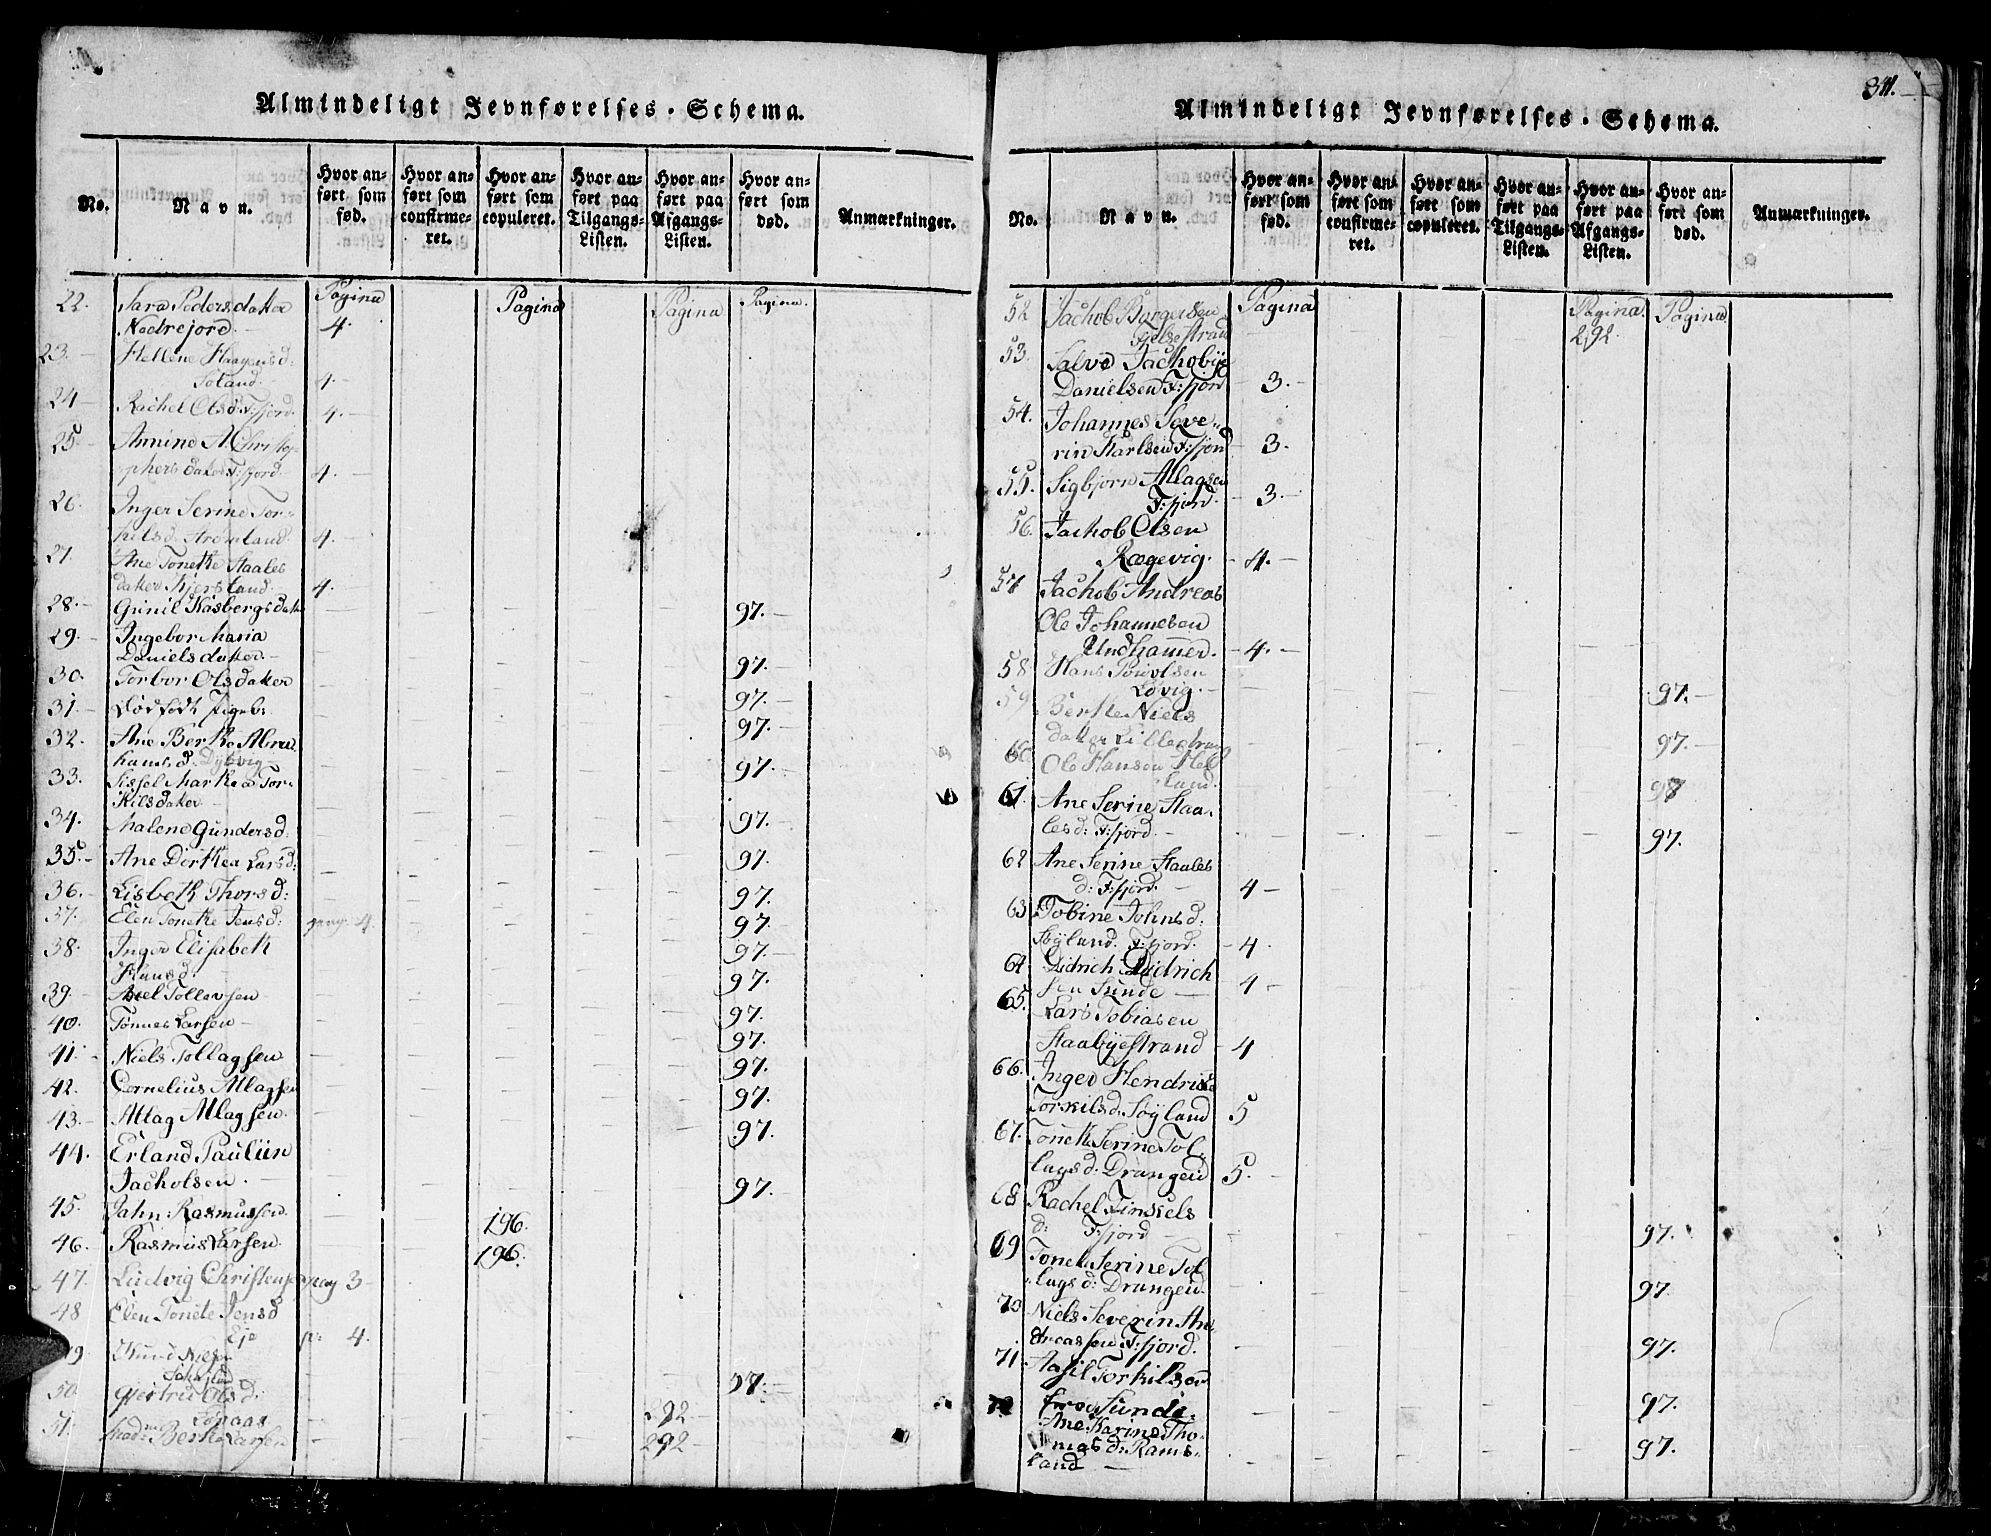 Almindeligt Jevnførelses-Schema.
No.
Navn.
Hvor anført som fød.
Hvor anført som confirmeret.
Hvor anført som copuleret.
Hvor anført paa Tilgangs-Listen.
Hvor anført paa Afgangs-Listen.
Hvor anført som død.
Anmærkninger.
Pagina Pagina Pagina Pagina.
22. Sara Pedersdatter
Nedrejord 4.
23. Hellene Haagensd:
Toland. 4.
24 Rachel Olsd. F:fjord. 4.
25 Annine M Christo
phersdatter F:fjord 4.
26. Inger Serine Tor-
kilsd. Strömland 4.
27. Ane Tonette Staales
datter Kjersland 4.
28. Gunil Kasbergsdatt 97.
29. Ingebor Maria
Danielsdatter. 97.
30. Torbor Olsdatter 97.
31. Dödfödt Pigeb: 97.
32. Ane Berthe Abra
hamsd: Dybvig 97.
33. Sissel Marthea Tor-
kilsdatter 97.
34. Malene Gundersd: 97.
35. Ane Dorthea Larsd: 97.
36. Lisbeth Thorsd: 97.
37. Elen Tonette Jensd: pag. 4 97.
38. Inger Elisabeth
Hansd. 97.
39. Axel Tollevsen 97.
40. Tönnes Larsen 97.
41. Niels Tollagsen 97.
42. Cornelius Allagsen 97.
43. Attag Allagsen. 97.
44. Erland Pauliin
Jacholsen. 97.
45. Jahn Rasmussen. 196.
46. Rasmus Larsen. 196.
47. Ludvig Christensen pag 3
48 Elen Tonette Jensd
Eje p: 4.
49 Knud Nielsen
97.
50. Gjertrud Olsd:
292
51. Mad: Berthe Larsen 292
341.
Almindeligt Jevnførelses-Schema.
No.
Navn.
Hvor anført som fød.
Hvor anført som confirmeret.
Hvor anført som copuleret.
Hvor anført paa Tilgangs-Listen.
Hvor anført paa Afgangs-Listen.
Hvor anført som død.
Anmærkninger.
Pagina Pagina. Pagina
52 Jachob Börgersen
292.
53. Salve Jachobÿe
Danielsen F:fjord 3.
54. Johannes Seve-
rin Karlsen F:fjord 3.
55. Sigbjörn Allagsen
F:fjord. 3.
56. Jachob Olsen
Rægevig. 4.
57 Jachob Andreas
Ole Johannesen
Undhammer. 4.
58 Hans Povolsen
Lövig. 97.
59 Berthe Niels
datter Lillestrand 97.
60 Ole Hansen Hel
land. 97
61. Ane Serine Staa-
lesd: F:fjord. 97.
62 Ane Serine Staales
d: F:fjord. 4
63 Tobine Johnsd:
Söÿland. F:fjord. 4.
64 Didrich Didrich
sen Sunde 4
65. Lars Tobiasen
Staabÿestrand 4
66. Inger Hendrikke
Torkilsd. Söÿland 5
67. Toneth Serine Tol
lagsd: Drangeid 5.
68 Rachel Tinskels
d: F:fjord 97.
69 Toneth Serine Tol
lagsd: Drangeid. 97.
70 Niels Severin An
dreassen F:fjord. 97.
71. Aasil Torkilsen
fra Sunde. 97.
72 Ane Karine Tho-
masd: Rams-
land 97.